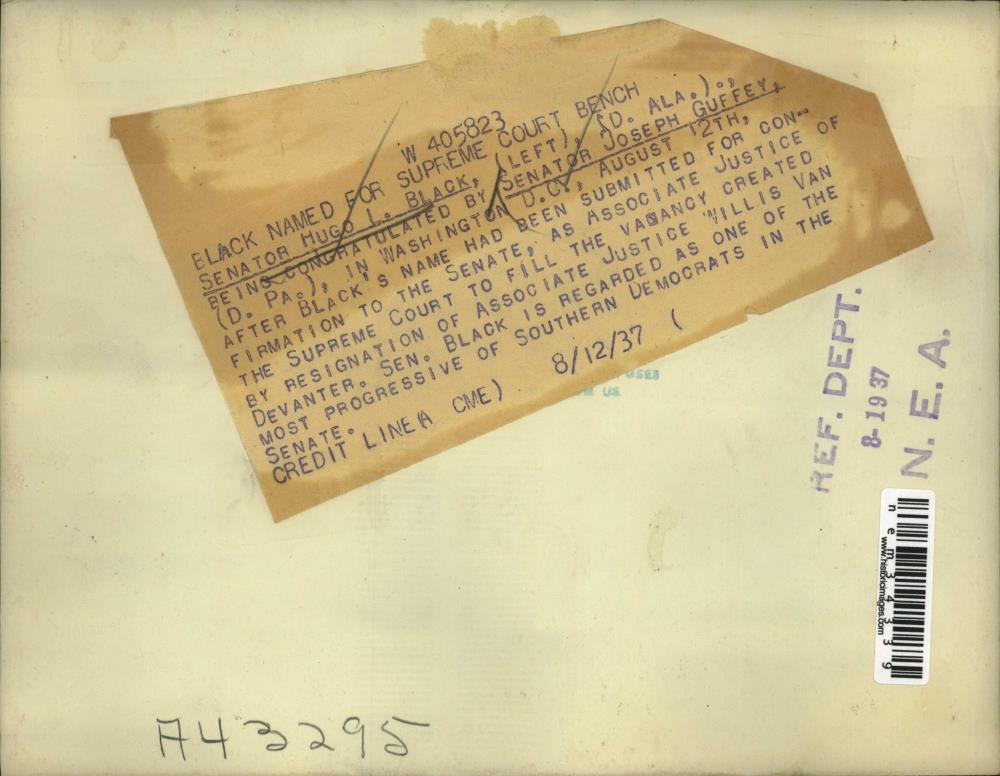 W 405823
BLACK NAMED FOR SUPREME COURT BENCH
SENATOR HUGO L. BLACK, (LEFT), (D. ALA.).,
BEING CONGRATULATED BY SENATOR JOSEPH GUFFEY,
(D. PA.), IN WASHINGTON D. C., AUGUST 12TH,
AFTER BLACK'S NAME HAD BEEN SUBMITTED FOR CON--
FIRMATION TO THE SENATE, AS ASSOCIATE JUSTICE OF
THE SUPREME COURT TO FILL THE VACANCY CREATED
BY RESIGNATION OF ASSOCIATE JUSTICE WILLIS VAN
DEVANTER. SEN. BLACK IS REGARDED AS ONE OF THE
MOST PROGRESSIVE OF SOUTHERN DEMOCRATS IN THE
SENATE.
CREDIT LINE(A CME) 8/12/37 (
US
REF. DEPT.
8-1937
N. E. A.
nem34339
www.historicimages.com
A43295